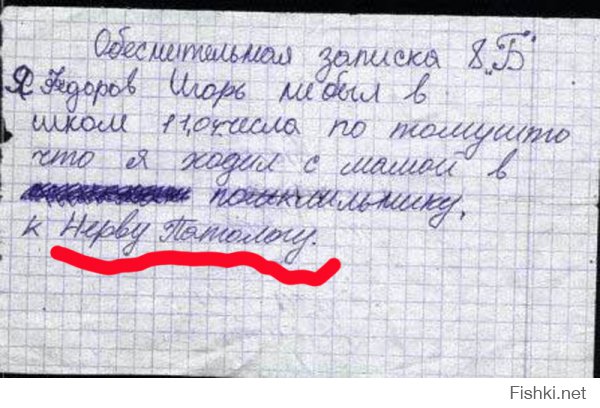 Обеснительная записка 8 „Б"
Я Федоров Игорь небыл в
школ 11,04 числа по томушто
что я ходил с мамой в
к Нерву Патологу.
Fishki.net